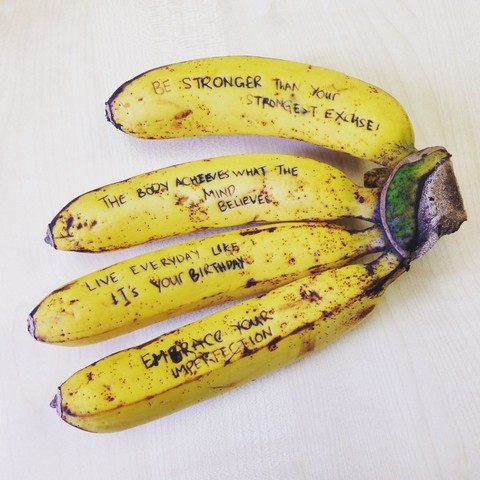 BE STRONGER THAN YOUR
STRONGEST EXCUSE!
THE BODY ACHIEVES WHAT THE
MIND
BELIEVES
LIVE EVERYDAY LIKE
IT'S YOUR BIRTHDAY
EMBRACE YOUR
IMPERFECTION